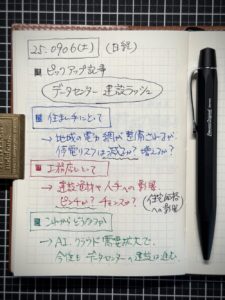 25.0906(土) (日経)
■ ピックアップ記事
データセンター 建設ラッシュ
■ 住まい手にとって
→ 地域の電力網が整備されるが
停電リスクは減るか？増えるか？
■ 工務店にとって
→ 建設資材や人手への影響
ピンチか？チャンスか？
(住宅価格
への影響)
■ これからどうなるか
→ AI、クラウド需要拡大で
今後もデータセンターの建設は進む